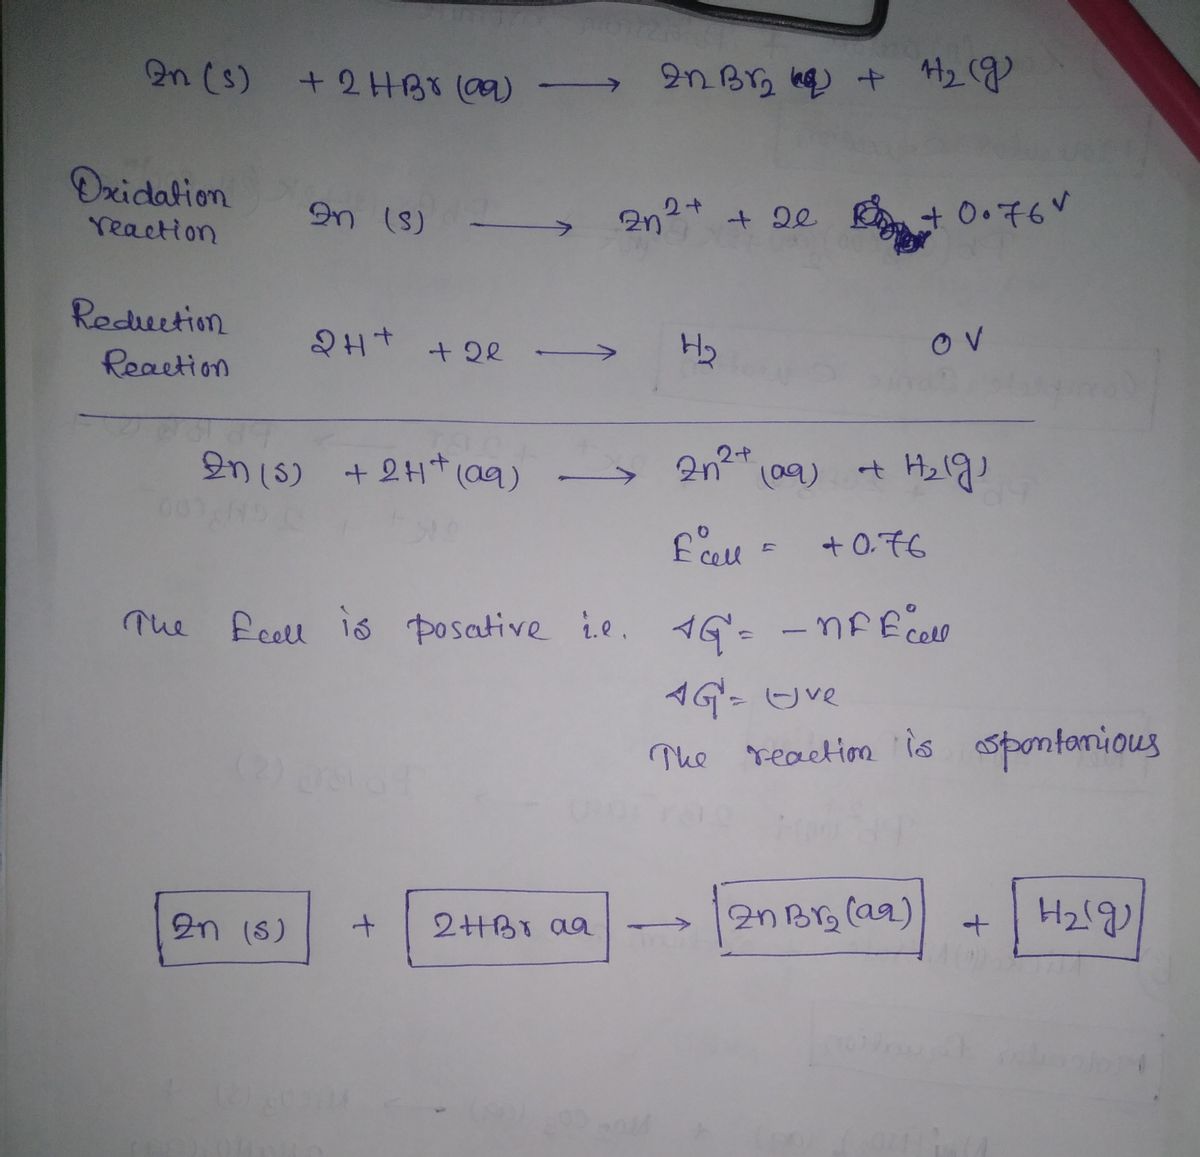 Zn (s) + 2HBr (aq) ⟶ ZnBr₂ (aq) + H₂ (g)
Oxidation reaction Zn (s) ⟶ Zn²⁺ + 2e + 0.76 V
Reduction Reaction 2H⁺ + 2e ⟶ H₂ 0 V
Zn (s) + 2H⁺ (aq) ⟶ Zn²⁺ (aq) + H₂ (g)
E°cell = +0.76
The Ecell is posative i.e. ΔG = −nFE°cell
ΔG = ⊖ve
The reaction is spontanious
Zn (s) + 2HBr aq ⟶ ZnBr₂ (aq) + H₂ (g)